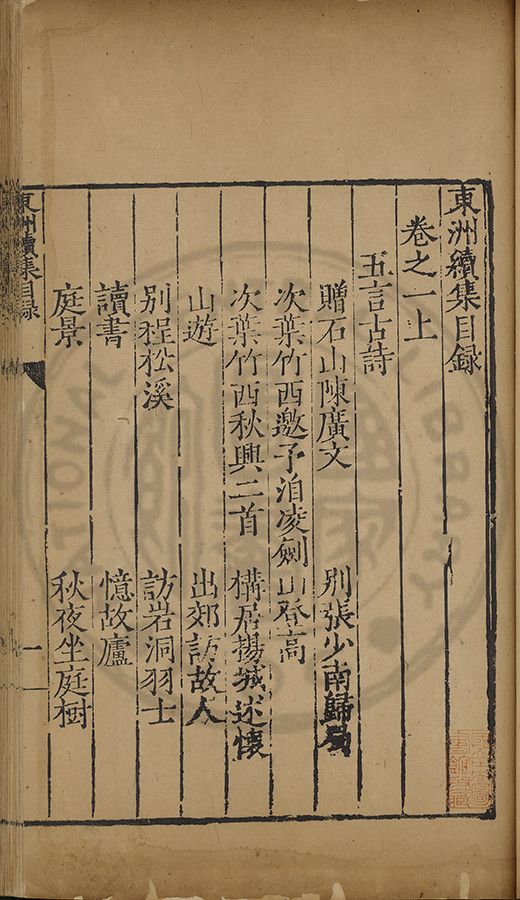 東洲續集目録
卷之一上
五言古詩
贈石山陳廣文　別張少南歸蜀
次葉竹西邀予洎凌劍山登高
次葉竹西秋興二首　構居揚城述懷
山遊　出郊訪故人
別程松溪　訪岩洞羽士
讀書　憶故廬
庭景　秋夜坐庭樹
東洲續集目録　一